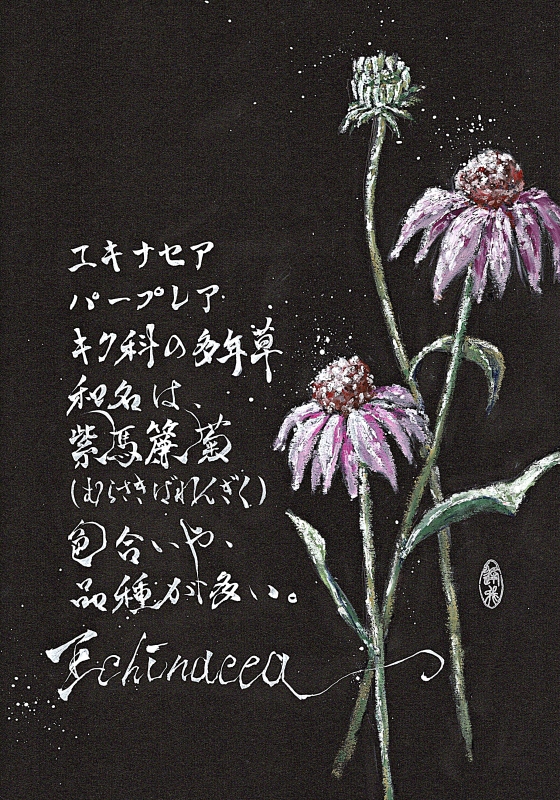 エキナセア
パープレア
キク科の多年草
和名は、
紫馬簾菊
(むらさきばれんぎく)
色合いや、
品種が多い。
Echinacea